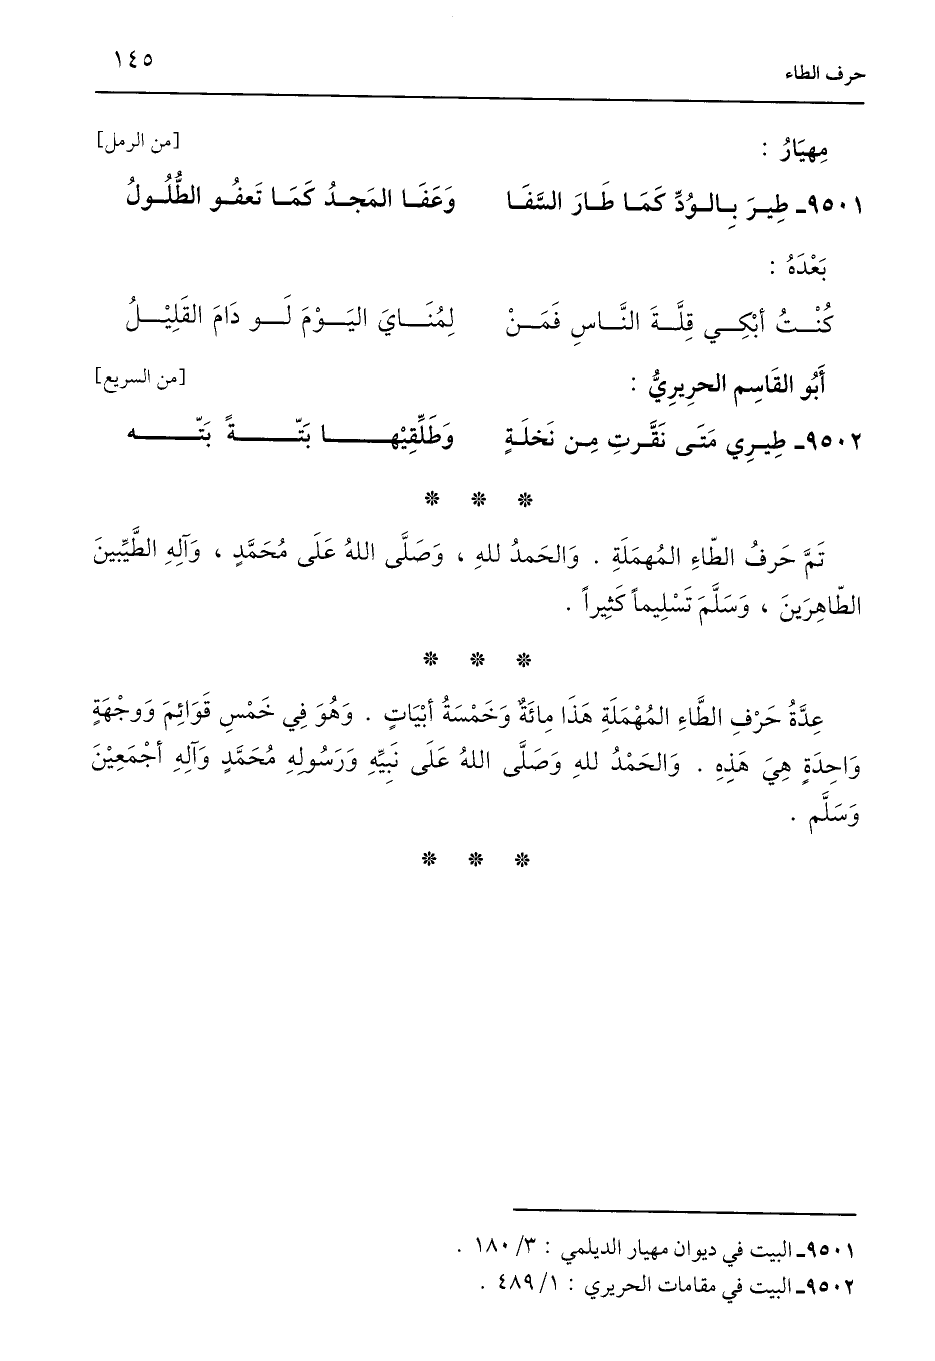 حرف الطاء ١٤٥
مِهيَارُ : [من الرمل]
٩٥٠١ـ طِيرَ بِالوُدِّ كَمَا طَارَ السَّفَا وَعَفَا المَجدُ كَمَا تَعفُو الطُّلُولُ
بَعْدَهُ :
كُنْتُ أبْكِي قِلَّةَ النَّاسِ فَمَنْ لِمُنَايَ اليَوْمَ لَو دَامَ القَلِيْلُ
أَبُو القَاسِم الحرِيرِيُّ : [من السريع]
٩٥٠٢ـ طِيرِي مَتَى نَقَّرتِ مِن نَخلَةٍ وَطَلِّقِيْها بَتّةً بَتّه
* * *
تَمَّ حَرفُ الطّاءِ المُهمَلَةِ . وَالحَمدُ للهِ ، وَصَلَّى اللهُ عَلَى مُحَمَّدٍ ، وَآلِهِ الطَّيِّبينَ
الطّاهِرَينَ ، وَسَلَّمَ تَسْلِيماً كَثِيراً .
* * *
عِدَّةُ حَرْفِ الطَّاءِ المُهْمَلَةِ هَذَا مِائَةٌ وَخَمْسَةُ أبْيَاتٍ . وَهُوَ فِي خَمْسِ قَوَائِمَ وَوِجْهَةٍ
وَاحِدَةٍ هِيَ هَذِهِ . وَالحَمْدُ للهِ وَصَلَّى اللهُ عَلَى نَبِيِّهِ وَرَسُولِهِ مُحَمَّدٍ وَآلِهِ أجْمَعِيْنَ
وَسَلَّم .
* * *
٩٥٠١ـ البيت في ديوان مهيار الديلمي : ٣/ ١٨٠ .
٩٥٠٢ـ البيت في مقامات الحريري : ١/ ٤٨٩ .